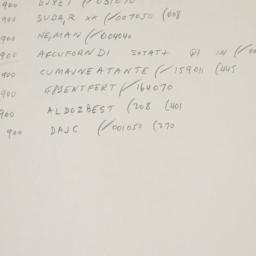 900
900 SUDA,R xx (✓007050 (008
900 NE,MAN (✓004040
900 AFCUFORNDI SOTAT+ QI IN (✓
900 CUMAJNEATANTE (✓159011 (445
900 (✓164070
900 ALDOZBEST (208 (401
900 DAJC (✓001050 (270